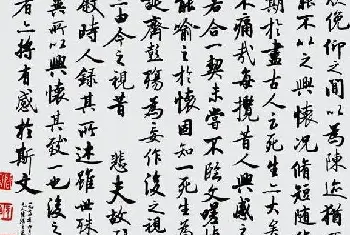 欣俛仰之間以為陳迹猶
能不以之興懷况脩短隨
期於盡古人云死生亦大矣
不痛哉每攬昔人興感之
若合一契未嘗不臨文嗟
能喻之於懷固知一死生為
誕齊彭殤為妄作後之視
亦由今之視昔 悲夫故
敘時人錄其所述雖世殊
異所以興懷其致一也後之
者亦將有感於斯文